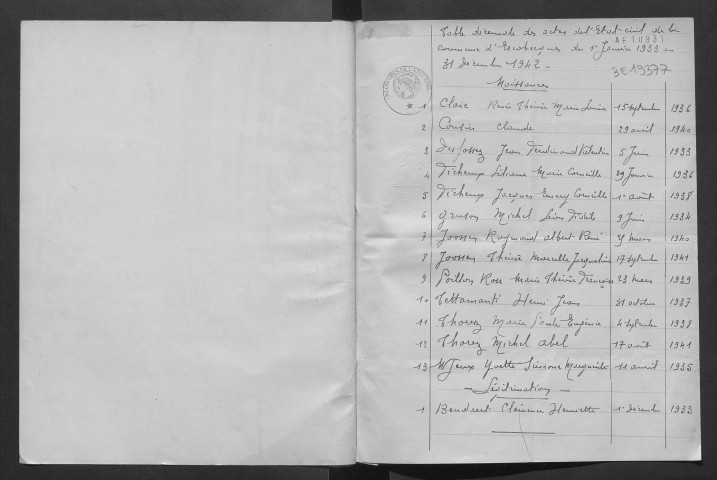 Table décennale des actes de l'Etat-civil de la
commune d'Escobecques du 1er Janvier 1933 au
31 Décembre 1942 -
3E19377
Naissances
1 Claie Renée Thérèse Marie Louise 15 septembre 1936
2 Cousin Claude 29 avril 1940
3 Desfossez Jean Ferdinand Valentin 5 Juin 1933
4 Dicheux Liliane Marie Corneille 29 Janvier 1936
5 Dicheux Jacques Emery Corneille 1er août 1938
6 Gruson Michel Léon 9 Juin 1934
7 Joossen Raymond Albert René mars 1940
8 Joossen Thérèse Marcelle Jacqueline 17 septembre 1941
9 Poillon Rose Marie Thérèse Françoise 23 mars 1939
10 Tettamanti Henri Jean 31 octobre 1937
11 Thorez Marie Paule Eugénie 4 septembre 1938
12 Thorez Michel Abel 17 août 1941
13 Yvette Simone Marguerite 11 avril 1935
- Légitimation -
1 Beudaert Clémence Henriette 1er décembre 1933